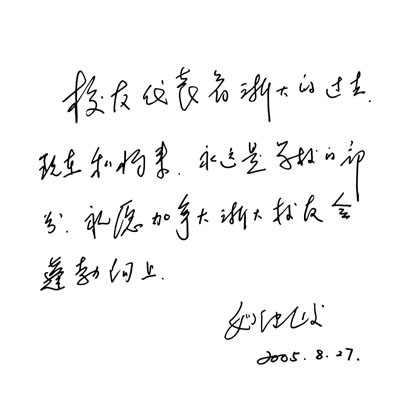 校友代表着浙大的过去、
现在和将来.永远是学校的部
分.祝愿加拿大浙大校友会
蓬勃向上.
2005.8.27.